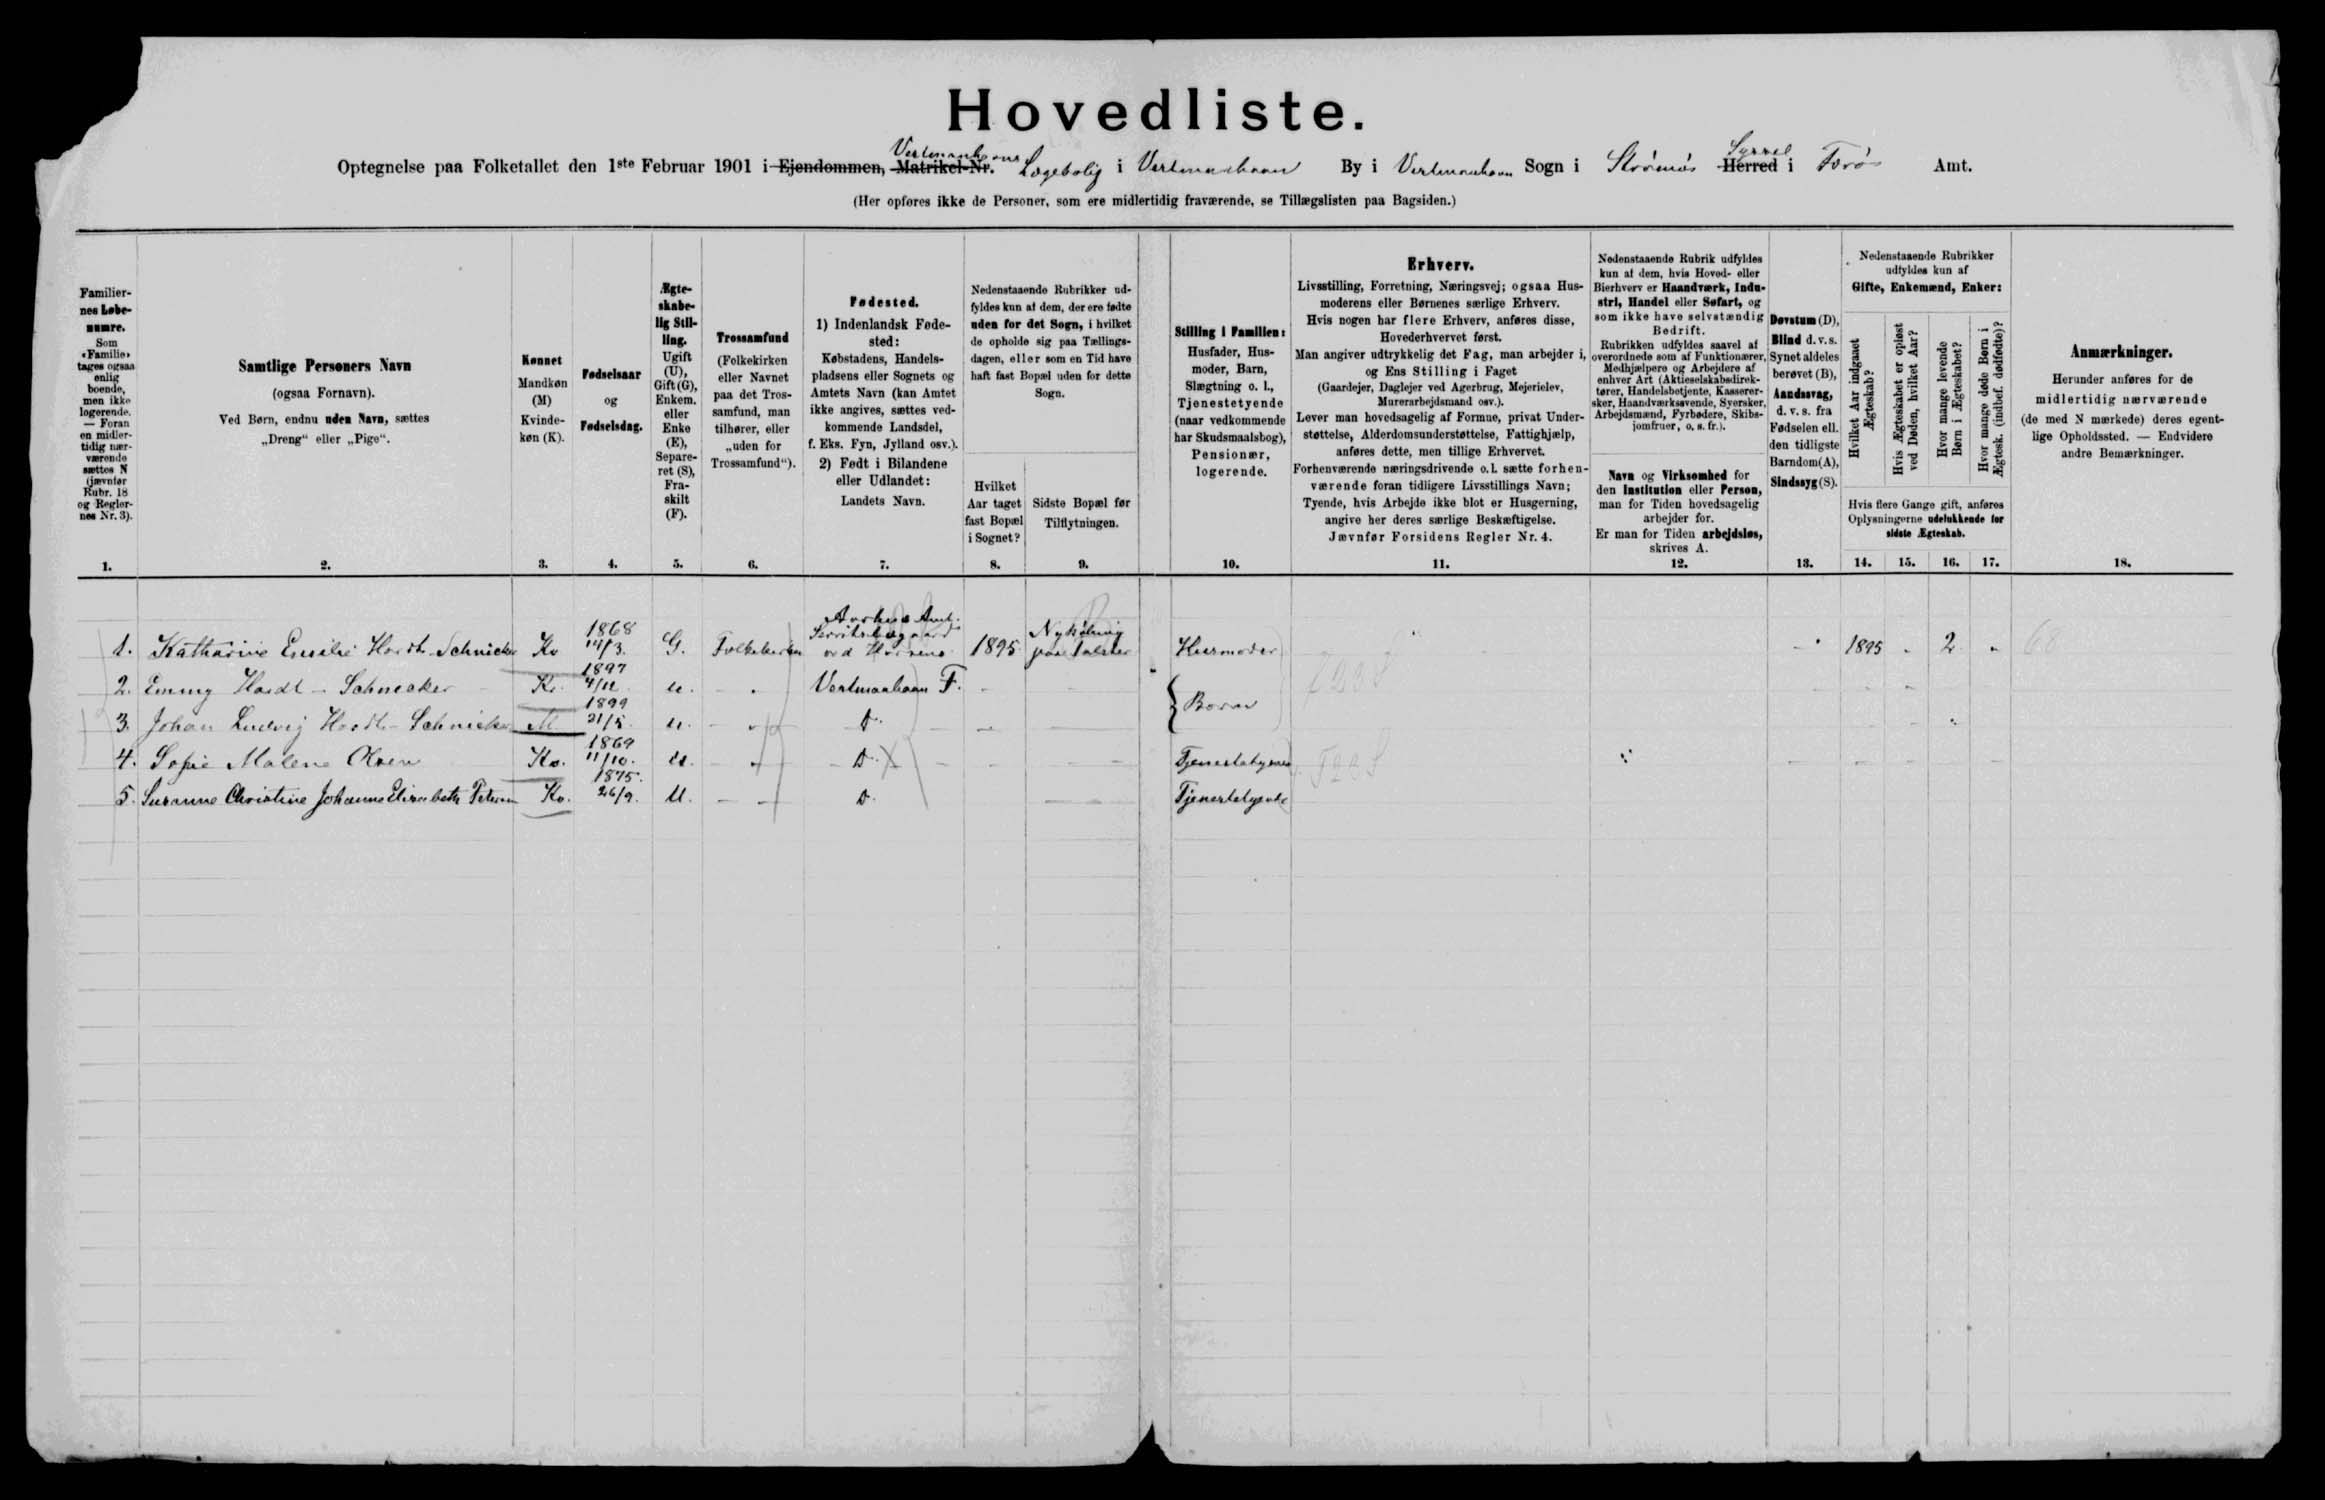 Hovedliste.
Optegnelse paa Folketallet den 1ste Februar 1901 i Ejendommen, Matrikel-Nr. Vestmanhavns Lægebolig i Vestmanhavn By i Vestmanhavn Sogn i Strømøs Herred Syssel i Færø Amt.
(Her opføres ikke de Personer, som ere midlertidig fraværende, se Tillægslisten paa Bagsiden.)
Familier-
nes Løbe-
numre.
Som
«Familie»
tages ogsaa
enlig
boende,
men ikke
logerende.
— Foran
en midler-
tidig nær-
værende
sættes N
(jævnfør
Rubr. 18
og Regler-
nes Nr. 3).
1.
Samtlige Personers Navn
(ogsaa Fornavn).
Ved Børn, endnu uden Navn, sættes
„Dreng“ eller „Pige“.
2.
Kønnet
Mandkøn
(M)
Kvinde-
køn (K).
3.
Fødselsaar
og
Fødselsdag.
4.
Ægte-
skabe-
lig Stil-
ling.
Ugift
(U),
Gift (G),
Enkem.
eller
Enke
(E),
Separe-
ret (S),
Fra-
skilt
(F).
5.
Trossamfund
(Folkekirken
eller Navnet
paa det Tros-
samfund, man
tilhører, eller
„uden for
Trossamfund“).
6.
Fødested.
1) Indenlandsk Føde-
sted:
Købstadens, Handels-
pladsens eller Sognets og
Amtets Navn (kan Amtet
ikke angives, sættes ved-
kommende Landsdel,
f. Eks. Fyn, Jylland osv.).
2) Født i Bilandene
eller Udlandet:
Landets Navn.
7.
Nedenstaaende Rubrikker ud-
fyldes kun af dem, der ere fødte
uden for det Sogn, i hvilket
de opholde sig paa Tællings-
dagen, eller som en Tid have
haft fast Bopæl uden for dette
Sogn.
Hvilket
Aar taget
fast Bopæl
i Sognet?
8.
Sidste Bopæl før
Tilflytningen.
9.
Stilling i Familien:
Husfader, Hus-
moder, Barn,
Slægtning o. l.,
Tjenestetyende
(naar vedkommende
har Skudsmaalsbog),
Pensionær,
logerende.
10.
Erhverv.
Livsstilling, Forretning, Næringsvej; ogsaa Hus-
moderens eller Børnenes særlige Erhverv.
Hvis nogen har flere Erhverv, anføres disse,
Hovederhvervet først.
Man angiver udtrykkelig det Fag, man arbejder i,
og Ens Stilling i Faget
(Gaardejer, Daglejer ved Agerbrug, Mejerielev,
Murerarbejdsmand osv.).
Lever man hovedsagelig af Formue, privat Under-
støttelse, Alderdomsunderstøttelse, Fattighjælp,
anføres dette, men tillige Erhvervet.
Forhenværende næringsdrivende o. l. sætte forhen-
værende foran tidligere Livsstillings Navn;
Tyende, hvis Arbejde ikke blot er Husgerning,
angive her deres særlige Beskæftigelse.
Jævnfør Forsidens Regler Nr. 4.
11.
Nedenstaaende Rubrik udfyldes
kun af dem, hvis Hoved- eller
Bierhverv er Haandværk, Indu-
stri, Handel eller Søfart, og
som ikke have selvstændig
Bedrift.
Rubrikken udfyldes saavel af
overordnede som af Funktionærer,
Medhjælpere og Arbejdere af
enhver Art (Aktieselskabsdirek-
tører, Handelsbetjente, Kasserer-
sker, Haandværkssvende, Syersker,
Arbejdsmænd, Fyrbødere, Skibs-
jomfruer, o. s. fr.).
Navn og Virksomhed for
den Institution eller Person,
man for Tiden hovedsagelig
arbejder for.
Er man for Tiden arbejdsløs,
skrives A.
12.
Døvstum (D),
Blind d. v. s.
Synet aldeles
berøvet (B),
Aandssvag,
d. v. s. fra
Fødselen ell.
den tidligste
Barndom (A),
Sindssyg (S).
13.
Nedenstaaende Rubrikker
udfyldes kun af
Gifte, Enkemænd, Enker:
Hvilket Aar indgaaet
Ægteskab?
Hvis Ægteskabet er opløst
ved Døden, hvilket Aar?
Hvor mange levende
Børn i Ægteskabet?
Hvor mange døde Børn i
Ægtesk. (indbef. dødfødte)?
Hvis flere Gange gift, anføres
Oplysningerne udelukkende for
sidste Ægteskab.
14. 15. 16. 17.
Anmærkninger.
Herunder anføres for de
midlertidig nærværende
(de med N mærkede) deres egent-
lige Opholdssted. — Endvidere
andre Bemærkninger.
18.
1. Katharine Emilie Hardt-Schnicker Kv 1868 14/3. G. Folkekirken Aarhus Amt. Serridslevgaard ved Horsens 1895 Nykøbing paa Falster Husmoder 1895 2 68
2. Emmy Hardt-Schnicker Kv. 1897 4/11 u. Vestmanhavn F.
3. Johan Ludvig Hardt-Schnicker M 1899 21/5. u. D. Børn
4. Sofie Malene Olsen Kv. 1869 11/10. u. D. Tjenestetyende
5. Susanne Christine Johanne Elisabeth Petersen Kv. 1875. 26/9. U. D. Tjenestetyende